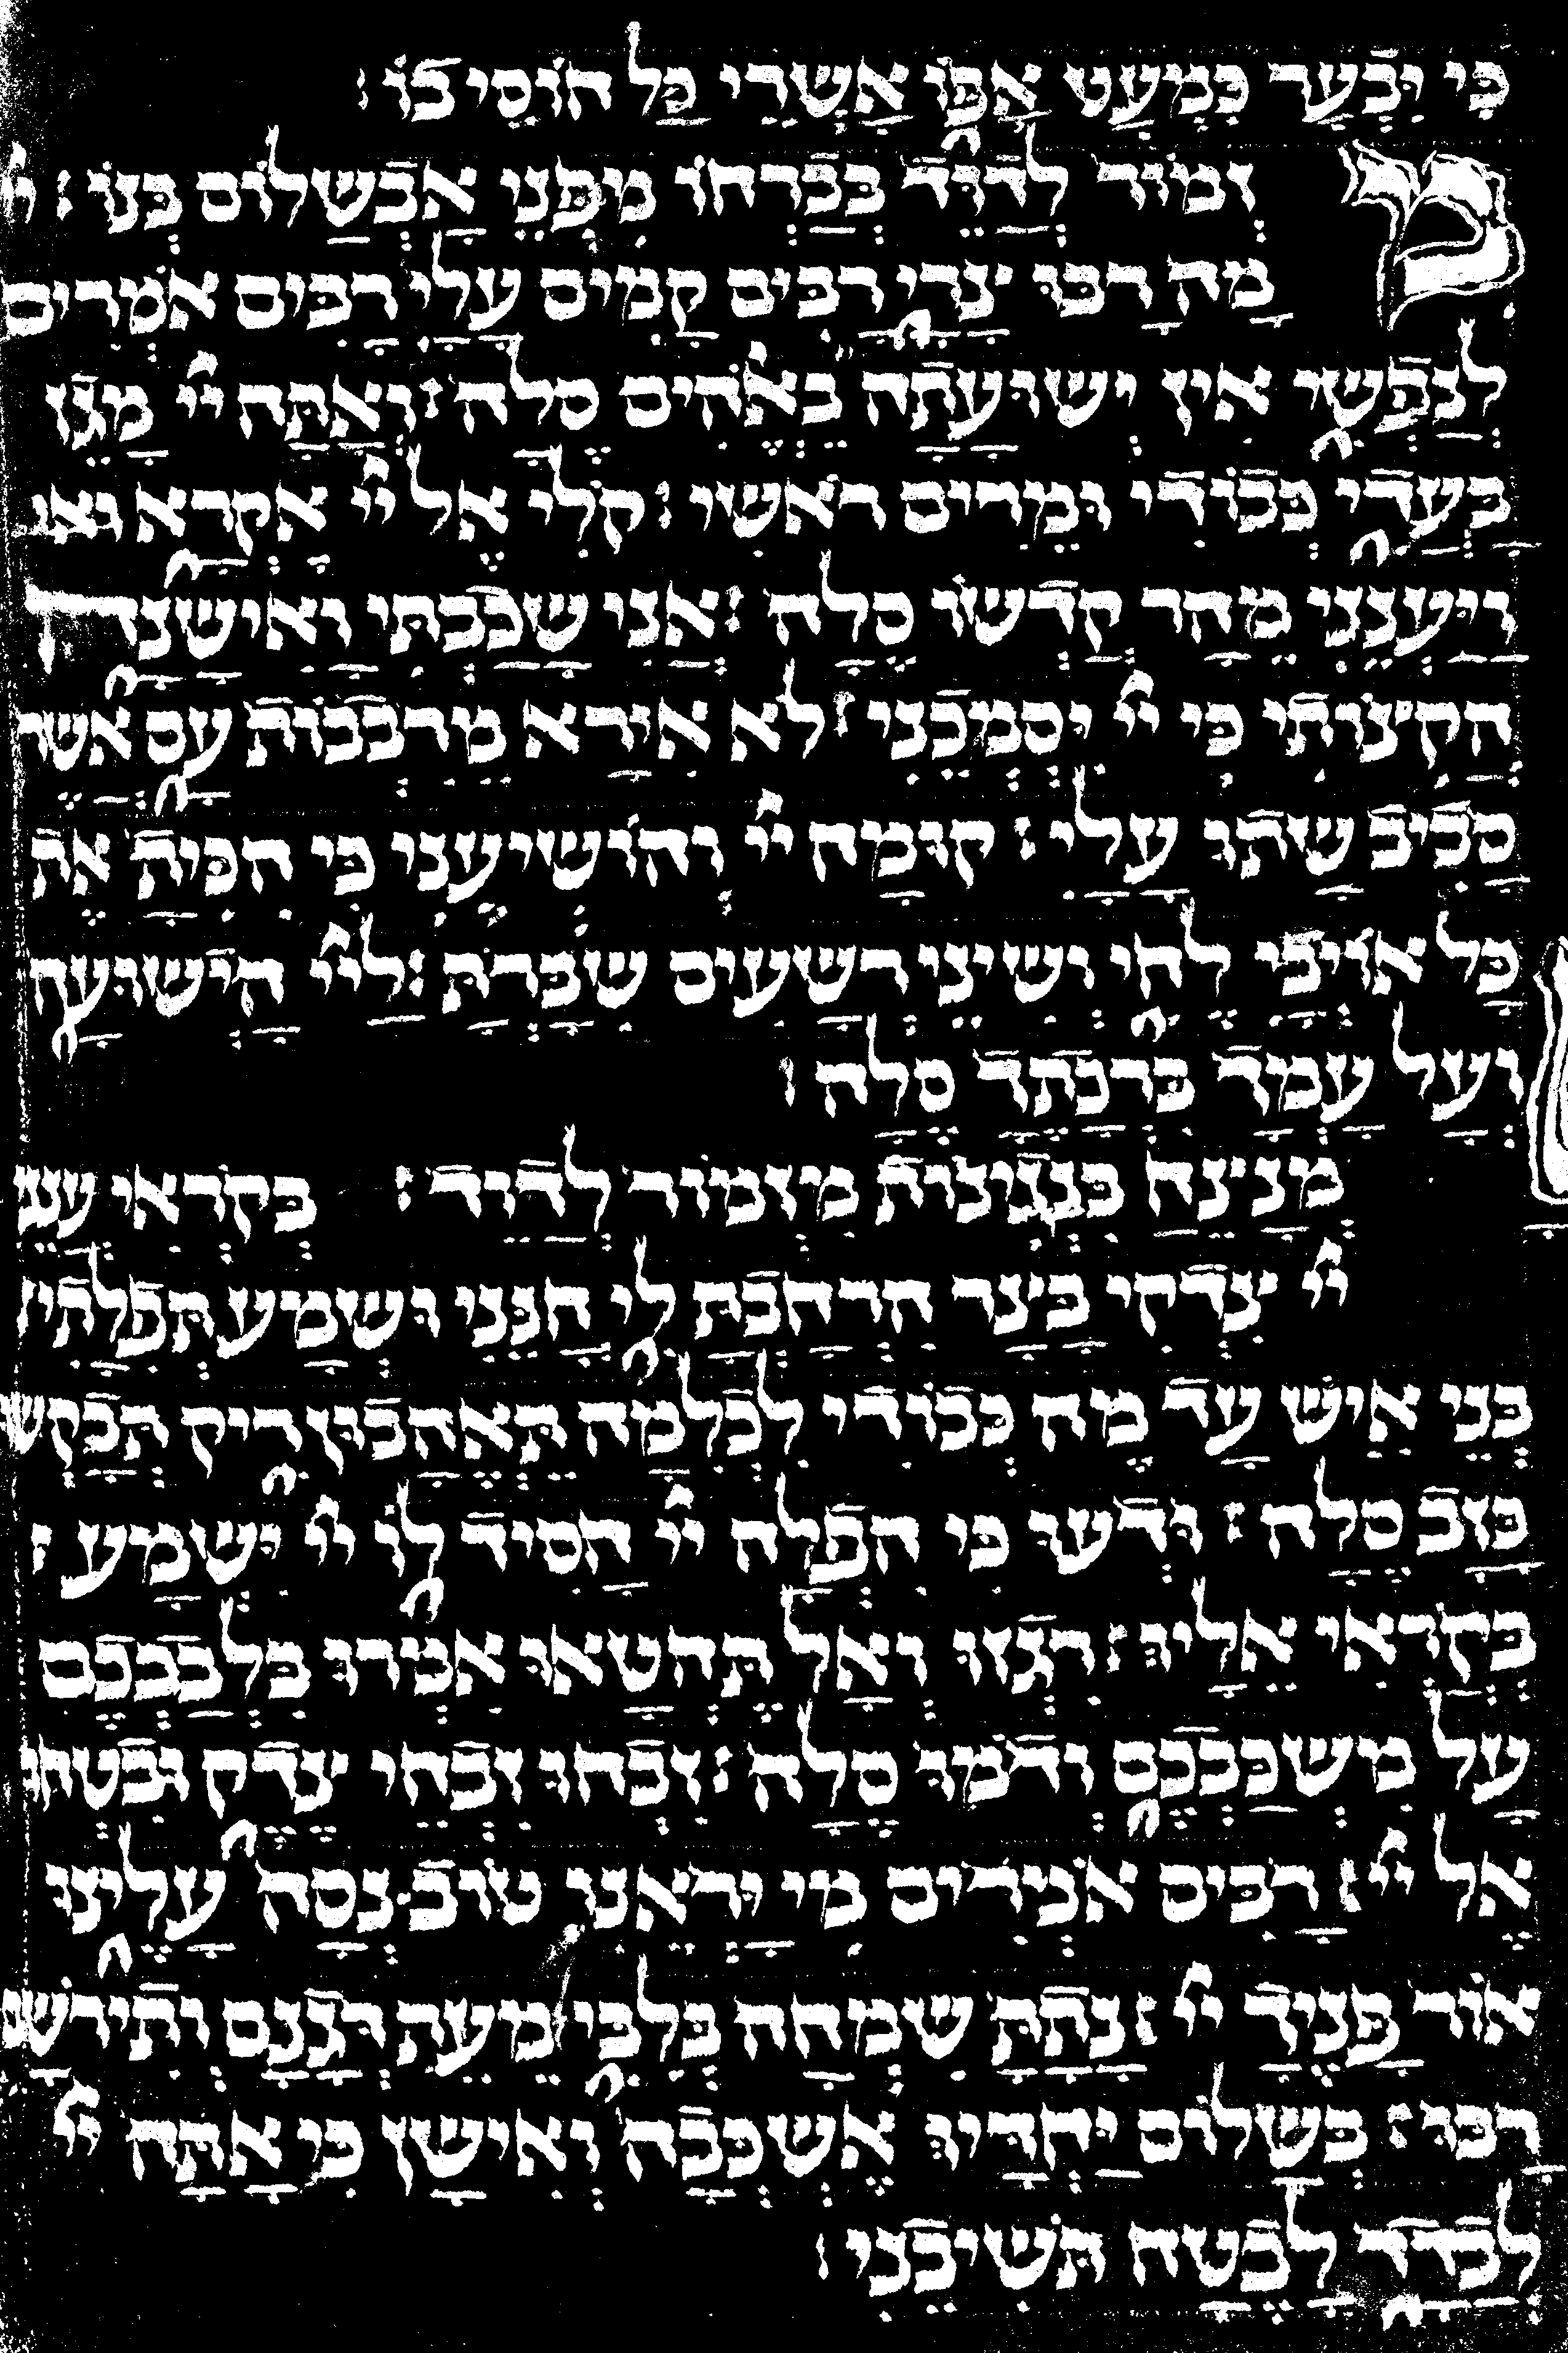 כִּי יִבְעַר כִּמְעַט אַפּוֹ אַשְׁרֵי כַּל חוֹסֵי בוֹ׃
מִזְמוֹר לְדָוִד בְּבָרְחוֹ מִפְּנֵי אַבְשָׁלוֹם בְּנוֹ׃ יי
מָה רַבּוּ צָרָי רַבִּים קָמִים עָלָי רַבִּים אֹמְרִים
לְנַפְשִׁי אֵין יְשׁוּעָתָה בֵאלֹהִים סֶלָה׃ וְאַתָּה יי מָגֵן
בַּעֲדִי כְּבוֹדִי וּמֵרִים רֹאשִׁי׃ קֹלִי אֶל יי אֶקְרָא
וַיַּעֲנֵנִי מֵהַר קָדְשׁוֹ סֶלָה׃ אֲנִי שָׁכַבְתִּי וָאִישָׁנָה
הֱקִיצוֹתִי כִּי יי יִסְמְכֵנִי׃ לֹא אִירָא מֵרִבְבוֹת עָם אֲשֶׁר
סָבִיב שָׁתוּ עָלָי׃ קוּמָה יי וְהוֹשִׁיעֵנִי כִּי הִכִּיתָ אֶת
כָּל אוֹיְבַי לֶחִי וְשִׁינֵּי רְשָׁעִים שִׁבַּרְתָּ׃ לַיי הַיְשׁוּעָה
וְעַל עַמְּךָ בִּרְכָתֶךָ סֶלָה׃
מְנַצֵּחַ בִּנְגִינוֹת מִזְמוֹר לְדָוִד׃ בְּקָרְאִי עֲנֵנִי
יי צִדְקִי בַּצָּר הִרְחַבְתָּ לִּי חָנֵּנִי וּשְׁמַע תְּפִלָּתִי׃
בְּנֵי אִישׁ עַד מֶה כְּבוֹדִי לִכְלִמָּה תֶּאֱהָבוּן רִיק תְּבַקְשׁוּ
כָּזָב סֶלָה׃ וּדְעוּ כִּי הִפְלָה יי חָסִיד לוֹ יי יִשְׁמַע׃
בְּקָרְאִי אֵלָיו׃ רִגְזוּ וְאַל תֶּחֱטָאוּ אִמְרוּ בִּלְבַבְכֶם
עַל מִשְׁכַּבְכֶם וְדֹמּוּ סֶלָה׃ זִבְחוּ זִבְחֵי צֶדֶק וּבִטְחוּ
אֶל יי׃ רַבִּים אֹמְרִים מִי יַרְאֵנוּ טוֹב נְסָה עָלֵינוּ
אוֹר פָּנֶיךָ יי׃ נָתַתָּ שִׂמְחָה בְּלִבִּי מֵעֵת דְּגָנָם וְתִירֹשָׁם
רָבּוּ׃ בְּשָׁלוֹם יַחְדָּיו אֶשְׁכְּבָה וְאִישָׁן כִּי אַתָּה יי
לְבָדָד לָבֶטַח תּוֹשִׁיבֵנִי׃